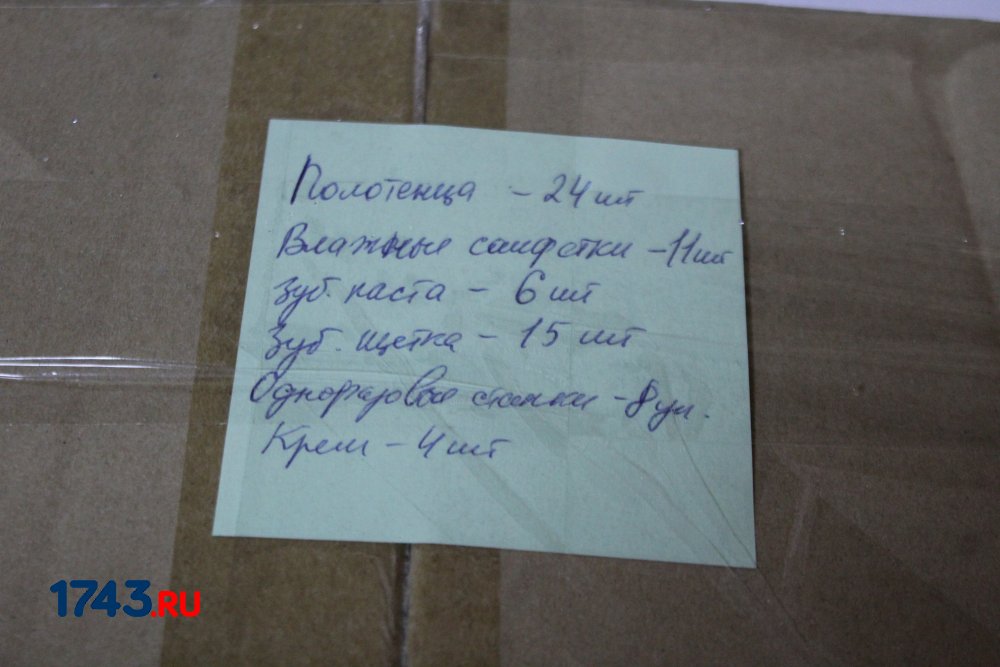 Полотенца - 24 шт
Влажные салфетки - 11 шт
Зуб. паста - 6 шт
Зуб. щетка - 15 шт
Одноразовые станки - 8 уп.
Крем - 4 шт
1743.RU